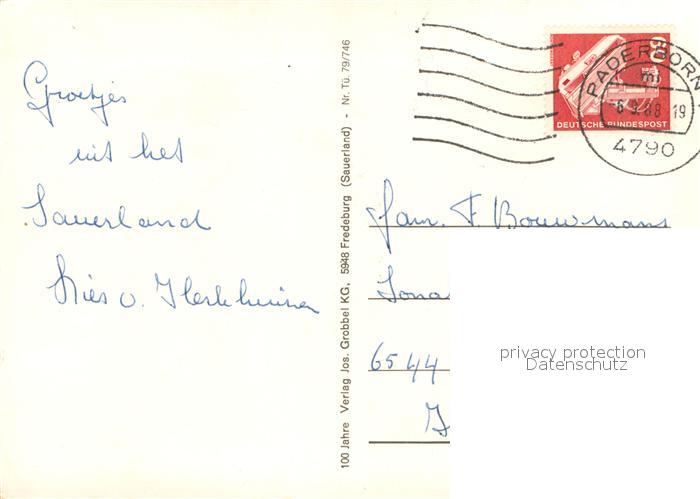 Groetjes
uit het
Sauerland
Dries v.
100 Jahre Verlag Jos. Grobbel KG, 5948 Fredeburg (Sauerland) - Nr. Tü. 79/746
60
DEUTSCHE BUNDESPOST
PADERBORN
mi
-6.9.88-19
4790
Fam. F. Bouwmans
6544
privacy protection
Datenschutz